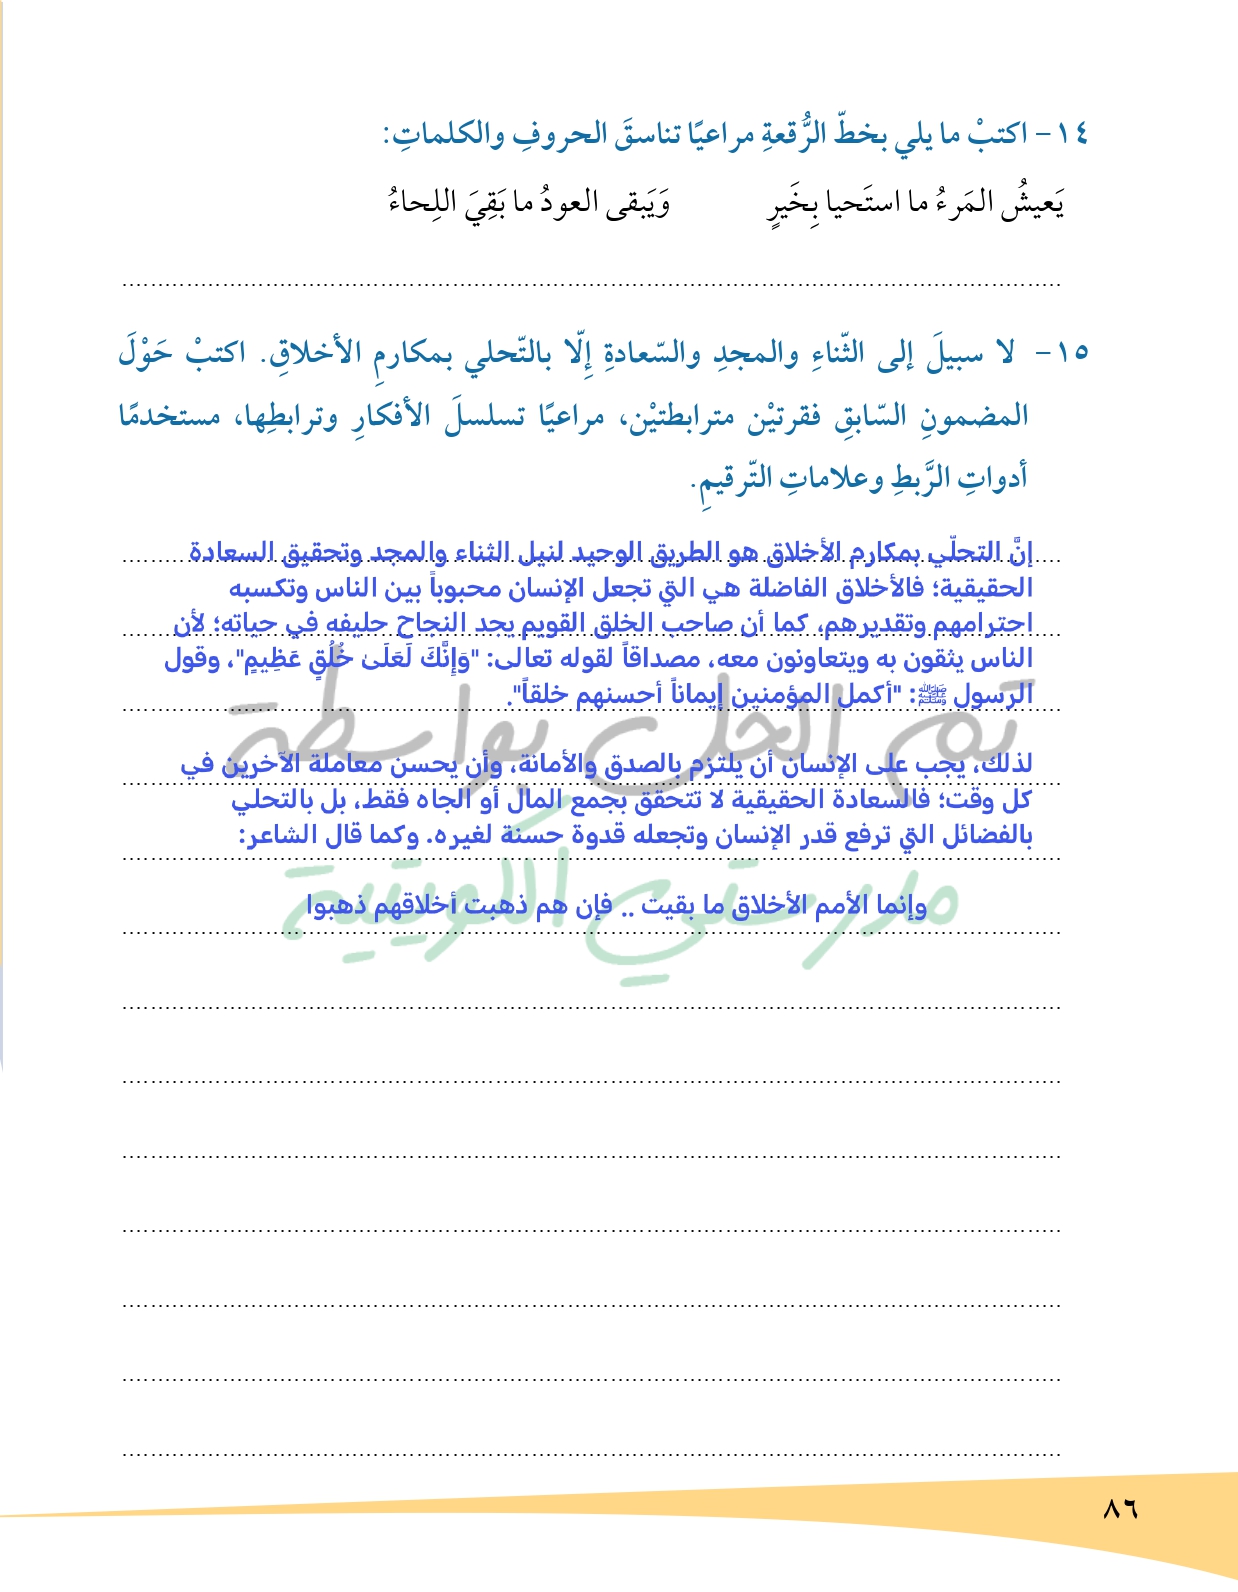 ١٤- اكتبْ ما يلي بخطّ الرُّقعةِ مراعيًا تناسقَ الحروفِ والكلماتِ:
يَعيشُ المَرءُ ما استَحيا بِخَيرٍ وَيَبقى العودُ ما بَقِيَ اللِحاءُ
١٥- لا سبيلَ إلى الثّناءِ والمجدِ والسّعادةِ إِلّا بالتّحلي بمكارمِ الأخلاقِ. اكتبْ حَوْلَ
المضمونِ السّابقِ فقرتيْن مترابطتيْن، مراعيًا تسلسلَ الأفكارِ وترابطِها، مستخدمًا
أدواتِ الرَّبطِ وعلاماتِ التّرقيمِ.
إنَّ التحلّي بمكارم الأخلاق هو الطريق الوحيد لنيل الثناء والمجد وتحقيق السعادة
الحقيقية؛ فالأخلاق الفاضلة هي التي تجعل الإنسان محبوباً بين الناس وتكسبه
احترامهم وتقديرهم، كما أن صاحب الخلق القويم يجد النجاح حليفه في حياته؛ لأن
الناس يثقون به ويتعاونون معه، مصداقاً لقوله تعالى: "وَإِنَّكَ لَعَلَىٰ خُلُقٍ عَظِيمٍ"، وقول
الرسول ﷺ: "أكمل المؤمنين إيماناً أحسنهم خلقاً".
لذلك، يجب على الإنسان أن يلتزم بالصدق والأمانة، وأن يحسن معاملة الآخرين في
كل وقت؛ فالسعادة الحقيقية لا تتحقق بجمع المال أو الجاه فقط، بل بالتحلي
بالفضائل التي ترفع قدر الإنسان وتجعله قدوة حسنة لغيره. وكما قال الشاعر:
وإنما الأمم الأخلاق ما بقيت .. فإن هم ذهبت أخلاقهم ذهبوا
تم الحل بواسطة
مدرستي الكويتية
٨٦